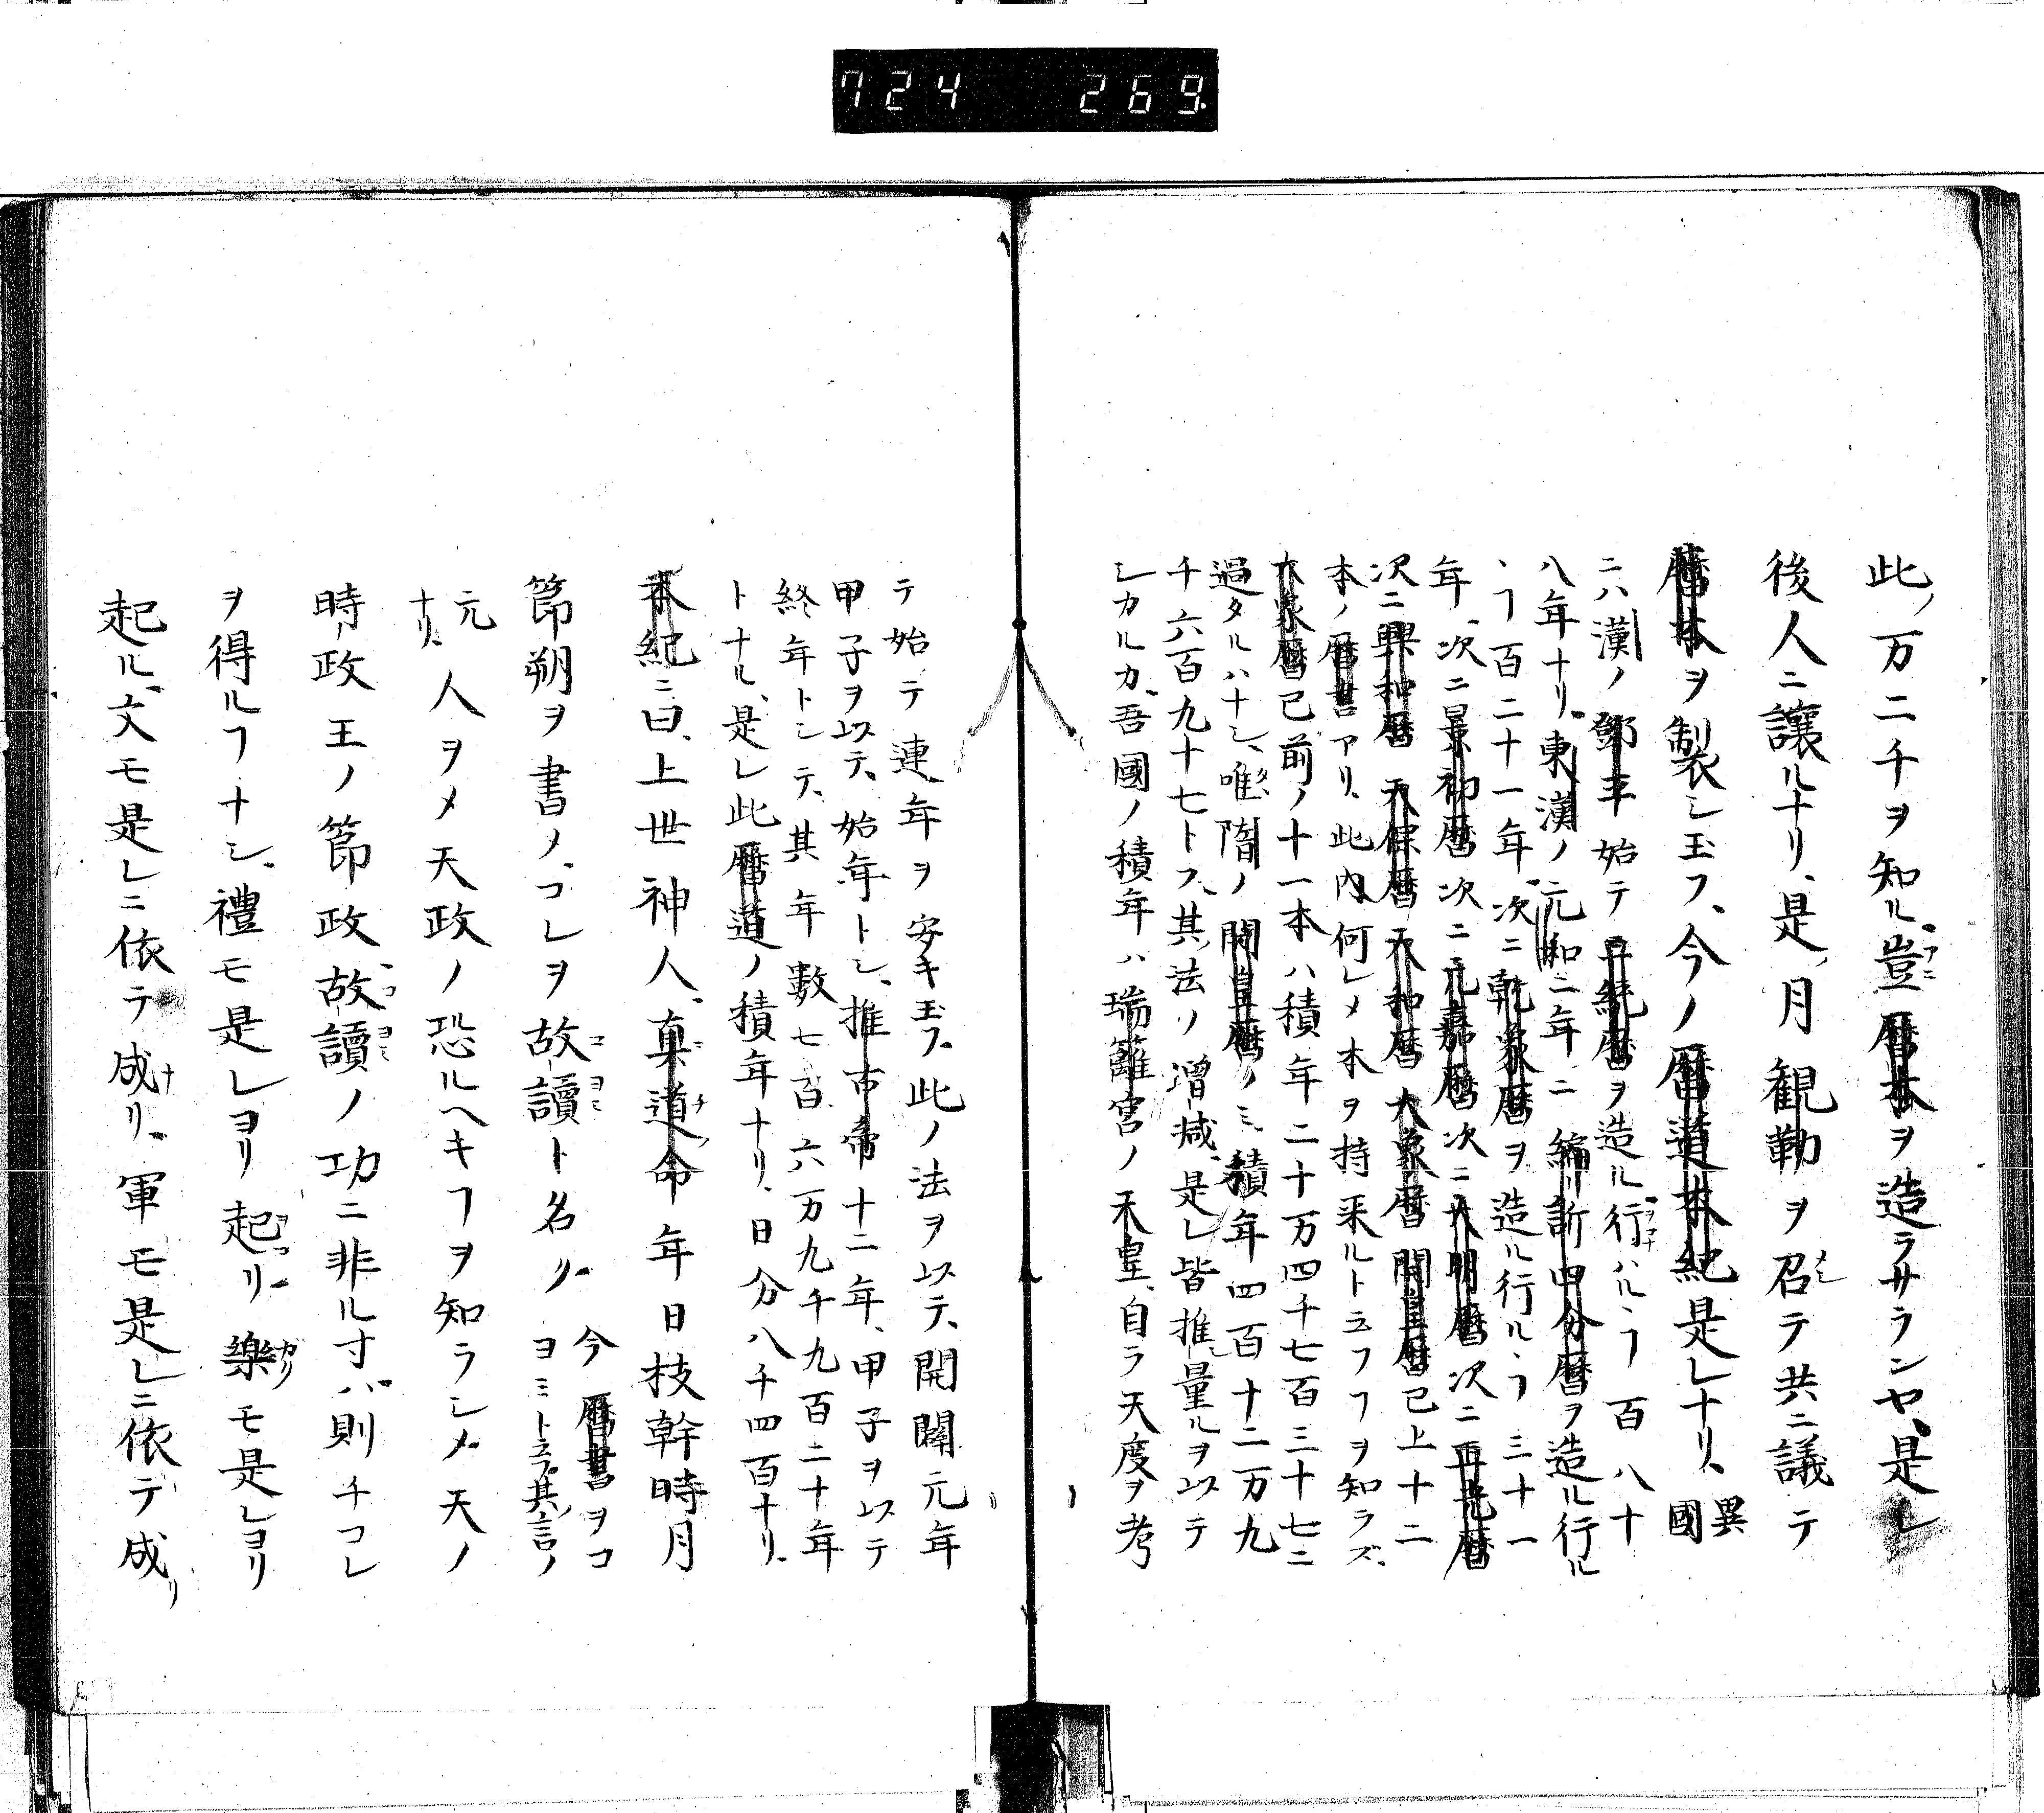 724 269.
此ノ万二千ヲ知ル豈暦本ヲ造ラサランヤ、是レ
後人ニ讓ルナリ、是ノ月観勒ヲ召テ共ニ議テ
暦本ヲ製シ玉フ、今ノ暦道本紀是レナリ、異國
ニハ漢ノ鄧平始テ三統暦ヲ造ル行ハルヽヿ百八十
八年ナリ、東漢ノ元和二年ニ編訢四分暦ヲ造ル行ル
ヽヿ百二十一年、次ニ乾象暦ヲ造ル行ルヽヿ三十一
年、次ニ景初暦次ニ元嘉暦次ニ大明暦次ニ正光暦
次ニ興和暦天保暦天和暦大象暦開皇暦已上十二
本ノ暦書アリ、此内何レノ本ヲ持来ルト云フヿヲ知ラズ、
大象暦已前ノ十一本ハ積年二十万四千七百三十七ニ
過タルハナシ、唯隋ノ開皇暦ノミ積年四百十二万九
千六百九十七トス、其法ノ増減、是レ皆推量ルヲ以テ
シカルカ、吾國ノ積年ハ瑞籬宮ノ天皇、自ラ天度ヲ考
テ始テ連年ヲ安キ玉フ、此ノ法ヲ以テ、開闢元年
甲子ヲ以テ、始年トシ、推古帝十二年、甲子ヲ以テ
終年トシテ、其年數七百六万九千九百二十年
トナル、是レ此暦道ノ積年ナリ、日分八千四百ナリ、
本紀ニ曰、上世神人、真道命年日枝幹時月
節朔ヲ書ノ、コレヲ故讀ト名リ 今暦書ヲコ
ヨミト云フ、其言ノ
元
ナリ、人ヲメ天政ノ恐ルヘキヿヲ知ラシメ、天ノ
時政王ノ節政故讀ノ功ニ非ル寸ハ則チコレ
ヲ得ルヿナシ、禮モ是レヨリ起コリ樂モ是レヨリ
起ル、文モ是レニ依テ成リ、軍モ是レニ依テ成リ